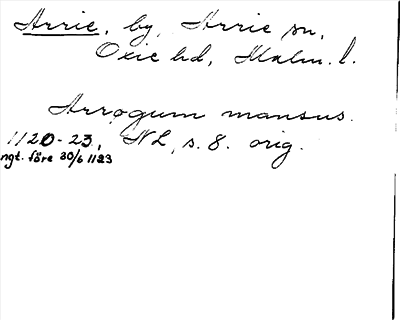 Arrie, by, Arrie sn,
Oxie hd, Malm. l.
Arrogum mansus.
1120-23, NL, s. 8. orig.
ngt. före 30/6 1123